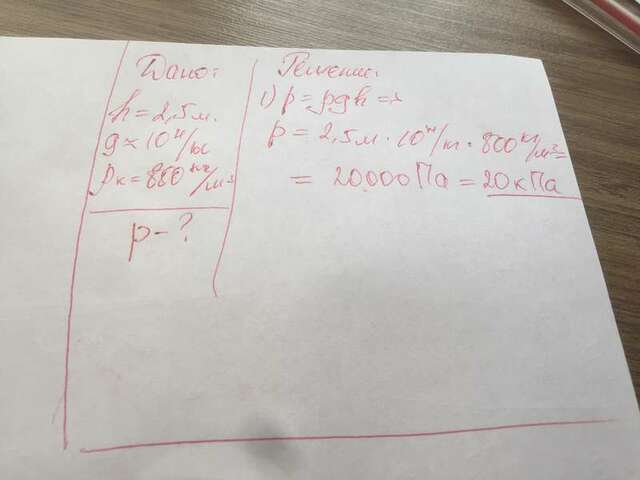 Дано:
h = 2,5 м.
g ≈ 10 н/кг
ρк = 800 кг/м³
p - ?
Решение:
1) p = ρgh =>
p = 2,5 м · 10 н/кг · 800 кг/м³ =
= 20.000 Па = 20 кПа